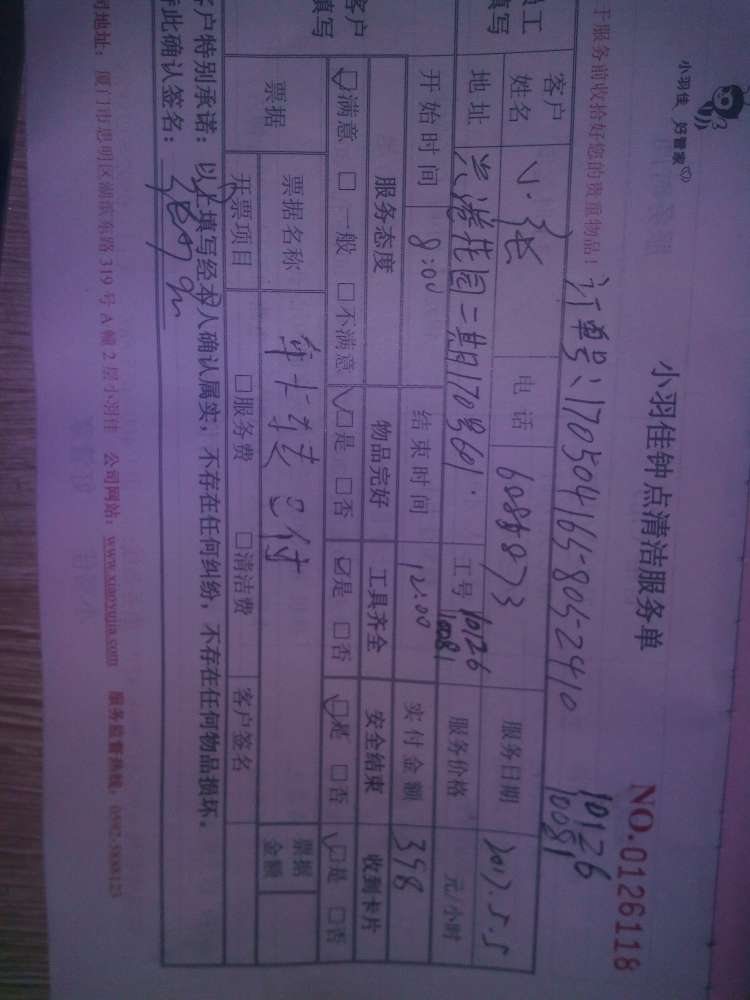 小羽佳 好管家
小羽佳钟点清洁服务单
NO.0126118
于服务前收拾好您的贵重物品！
订单号：170504165-805-2410
10126
10081
员工填写
客户姓名
电话 6088873
服务日期 2017.5.5
地址 兰港花园二期170号601
工号 10126
10081
服务价格 元/小时
开始时间 8:00
结束时间 12:00
实付金额 398
客户填写
服务态度 物品完好 工具齐全 安全结束 收到卡片
☑满意 □一般 □不满意 ☑是 □否 ☑是 □否 ☑是 □否 ☑是 □否
票据 票据名称 年卡 已付
票据金额
开票项目 □服务费 □清洁费 客户签名
客户特别承诺：以上填写经本人确认属实，不存在任何纠纷，不存在任何物品损坏。
特此确认签名：
司地址：厦门市思明区湖滨东路319号A幢2层小羽佳 公司网站：www.xiaoyujia.com 服务监督热线：0592-5888123